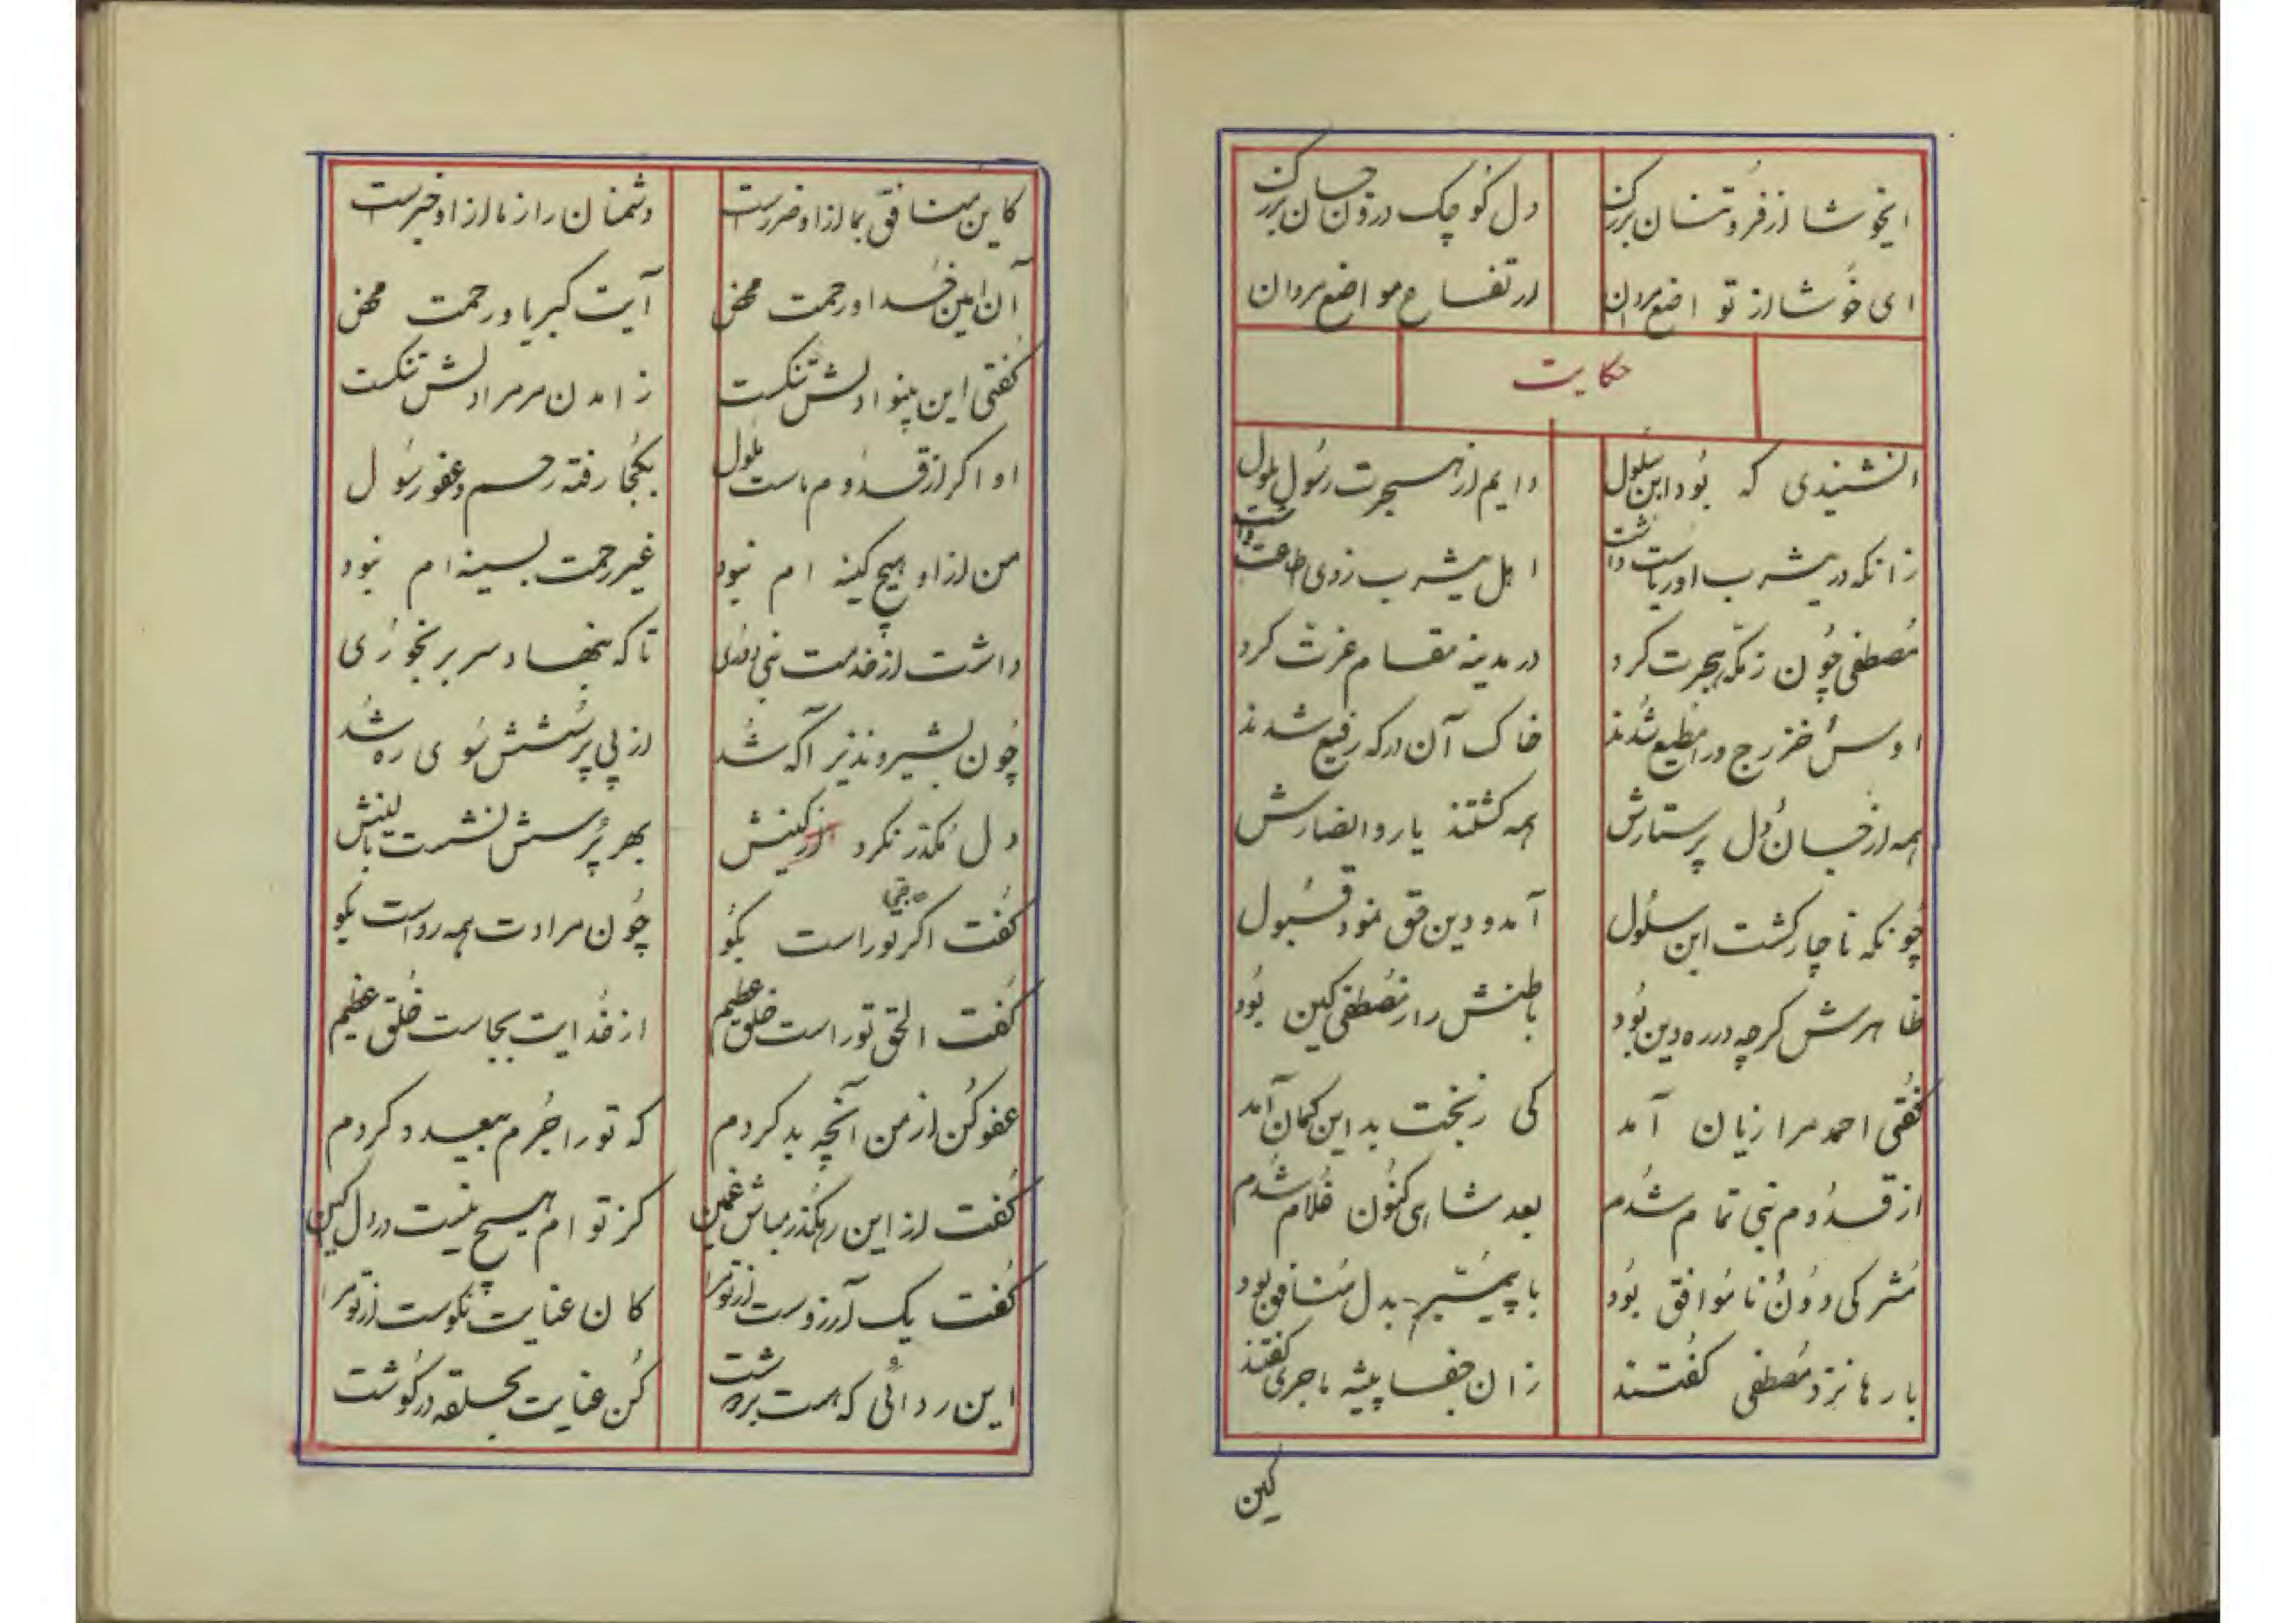 ایخوشا از فروتنان بزرگ دل کوچک درون جان بزرگ
ای خوشا از تواضع مردان ارتفاع مواضع مردان
حکایت
نشنیدی که بود ابن سلول دایم از هجرت رسول ملول
زانکه در یثرب او ریاست داشت اهل یثرب زوی اطاعت داشت
مصطفی چون ز مکه هجرت کرد در مدینه مقام عزت کرد
اوس و خزرج ورا مطیع شدند خاک آن درگه رفیع شدند
همه از جان و دل پرستارش همه گشتند یار و انصارش
چونکه ناچار گشت ابن سلول آمد و دین حق نمود قبول
ظاهرش گرچه در ره دین بود باطنش را ز مصطفی کین بود
گفتی احمد مرا زیان آمد کی ز بخت بد این گمان آمد
از قدوم نبی تمام شدم بعد شاهی کنون غلام شدم
مشرکی دون ناموافق بود با پیمبر بدل منافق بود
بارها نزد مصطفی گفتند زان جفا پیشه ماجری گفتند
کین
کاین منافق بما ازاو ضررست دشمنان را ز ما ازاو خبرست
آن امین خدا و رحمت محض آیت کبریا و رحمت محض
گفتی این بینوا دلش تنگست ز آمدن مر مرا دلش تنگست
او اگر از قدوم ماست ملول بکجا رفته رحم و عفو رسول
من ازاو هیچ کینه ام نبود غیر رحمت بسینه ام نبود
داشت از خدمت نبی دوری تا که بنهاد سر برنجوری
چون بشیر و نذیر آگه شد از پی پرسشش سوی ره شد
دل مکدر نکرد از کینش بهر پرسش نشست بالینش
گفت اگر حاجتی توراست بگو چون مرادت همه رواست بگو
گفت الحق توراست خلق عظیم از خدایت بجاست خلق عظیم
عفو کن از من آنچه بد کردم که تورا جرم بیعدد کردم
گفت از این رهگذر مباش غمین کز تو ام هیچ نیست در دل کین
گفت یک آرزوست از تو مرا کان عنایت نکوست از تو مرا
این ردائی که هست بر دوشت کن عنایت بحلقه در گوشت